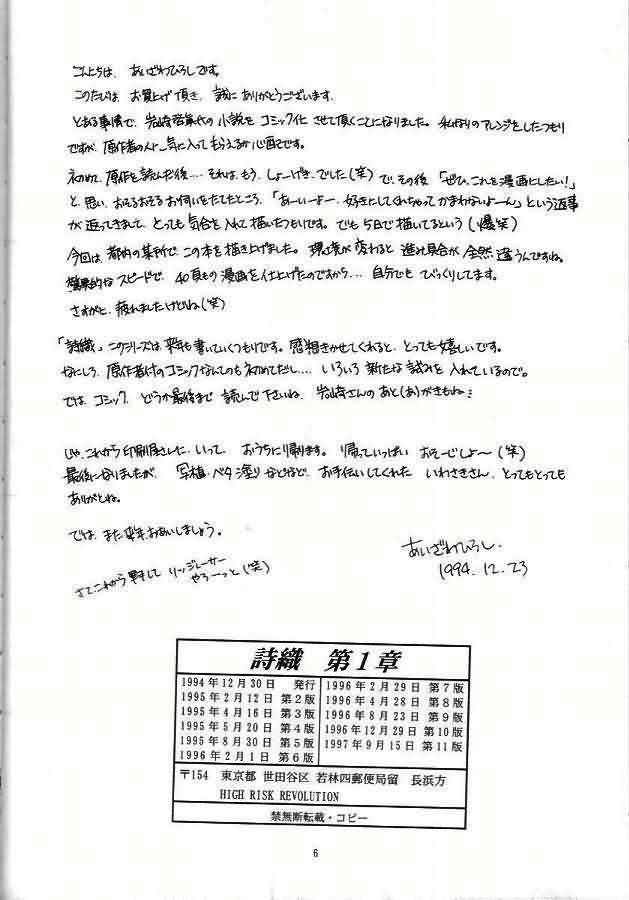 こんにちは、あいざわひろしです。
このたびは、お買上げ頂き、誠にありがとうございます。
とある事情で、岩崎啓眞代の小説をコミック化させて頂くことになりました。私なりのアレンジをしたつもり
ですが、原作者の人に気に入ってもらえるか心配です。
初めて、原作を読んだ後…それは、もう、しょーげきでした(笑)で、その後「ぜひ、これを漫画にしたい!」
と、思い、おそるおそるお伺いをたてたところ、「あーいーよー、好きにしてくれちゃってかまわないよーん」という返事
が返ってきました、とっても気合を入れて描いたつもりです。でも5日で描いてるという(爆笑)
今回は、都内の某所で、この本を描き上げました。環境が変わると進み具合が全然違うんですね。
驚異的なスピードで、40頁もの漫画を仕上げたのですから…自分でもびっくりしてます。
さすがに、疲れましたけどね(笑)
「詩織」このシリーズは来年も書いていくつもりです。感想きかせてくれると、とっても嬉しいです。
なにしろ、原作者付のコミックなんてのも初めてだし…いろいろ新たな試みを入れているので。
では、コミック、どうか最後まで読んで下さいね、岩崎さんのあと(あ)がきもね
じゃ、これから印刷屋さんに、いって、おうちに帰ります。帰っていっぱいおそーじしよ〜(笑)
最後になりましたが、写植・ベタ塗りなどなど、お手伝いしてくれたいわさきさん、とってもとっても
ありがとね。
では、また来年、おあいしましょう。
さて、これから リッジレーサー
やろーっと(笑)
あいざわひろし.
1994.12.23
詩織 第1章
1994年12月30日 発行
1995年2月12日 第2版
1995年4月16日 第3版
1995年5月20日 第4版
1995年8月30日 第5版
1996年2月1日 第6版
1996年2月29日 第7版
1996年4月28日 第8版
1996年8月23日 第9版
1996年12月29日 第10版
1997年9月15日 第11版
〒154 東京都 世田谷区 若林四郵便局留 長浜方
HIGH RISK REVOLUTION
禁無断転載・コピー
6